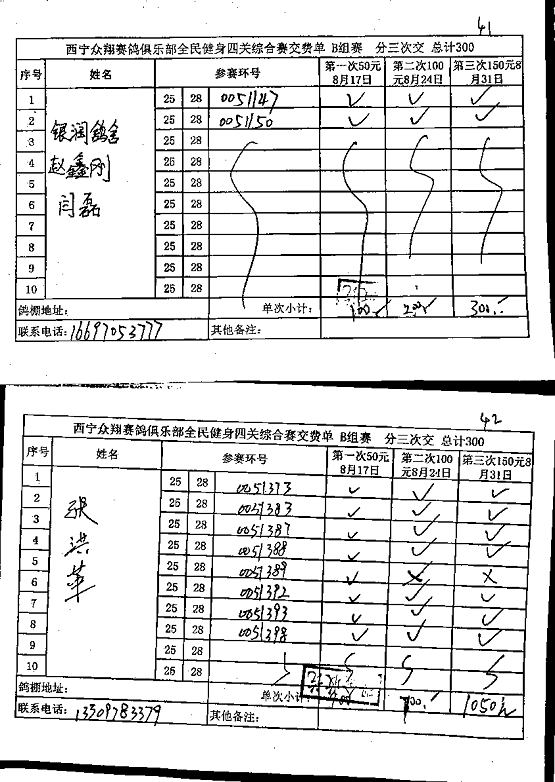 41
西宁众翔赛鸽俱乐部全民健身四关综合赛交费单 B组赛 分三次交 总计300
序号 姓名 参赛环号 第一次50元8月17日 第二次100元8月24日 第三次150元8月31日
1 25 28 0051147 ✓ ✓ ✓
2 25 28 0051150 ✓ ✓ ✓
银润鸽舍
3 25 28
赵鑫刚
4 25 28
5 25 28
闫磊
6 25 28
7 25 28
8 25 28
9 25 28
10 25 28
鸽棚地址: 单次小计: 100 200 300
联系电话: 16697053777 其他备注:
42
西宁众翔赛鸽俱乐部全民健身四关综合赛交费单 B组赛 分三次交 总计300
序号 姓名 参赛环号 第一次50元8月17日 第二次100元8月24日 第三次150元8月31日
张洪苹
1 25 28 0051373 ✓ ✓ ✓
2 25 28 0051383 ✓ ✓ ✓
3 25 28 0051387 ✓ ✓ ✓
4 25 28 0051388 ✓ ✓ ✓
5 25 28 0051389 ✓ × ×
6 25 28 0051392 ✓ ✓ ✓
7 25 28 0051393 ✓ ✓ ✓
8 25 28 0051398 ✓ ✓ ✓
9 25 28
10 25 28
鸽棚地址: 单次小计: 700 1050
联系电话: 13309783379 其他备注: